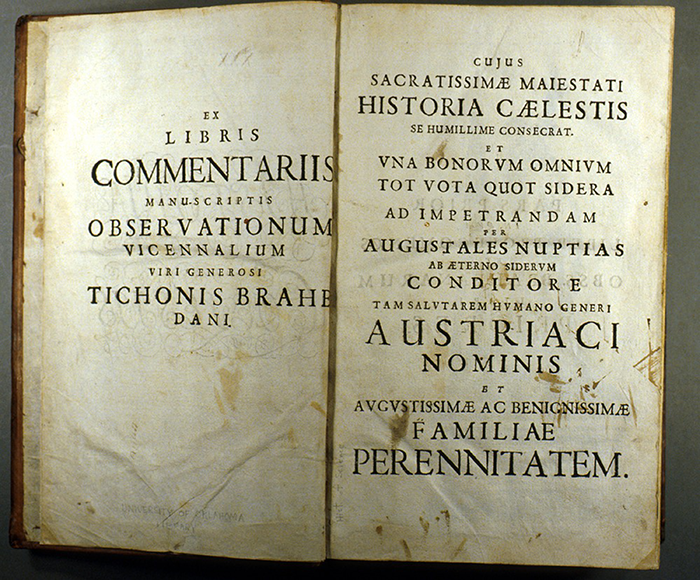 EX
LIBRIS
COMMENTARIIS
MANU-SCRIPTIS
OBSERVATIONUM
VICENNALIUM
VIRI GENEROSI
TICHONIS BRAHE
DANI.
UNIVERSITY OF OKLAHOMA
LIBRARY
CUJUS
SACRATISSIMÆ MAIESTATI
HISTORIA CÆLESTIS
SE HUMILLIME CONSECRAT.
ET
VNA BONORVM OMNIVM
TOT VOTA QUOT SIDERA
AD IMPETRANDAM
PER
AUGUSTALES NUPTIAS
AB ÆTERNO SIDERVM
CONDITORE
TAM SALVTAREM HVMANO GENERI
AUSTRIACI
NOMINIS
ET
AVGVSTISSIMÆ AC BENIGNISSIMÆ
FAMILIAE
PERENNITATEM.